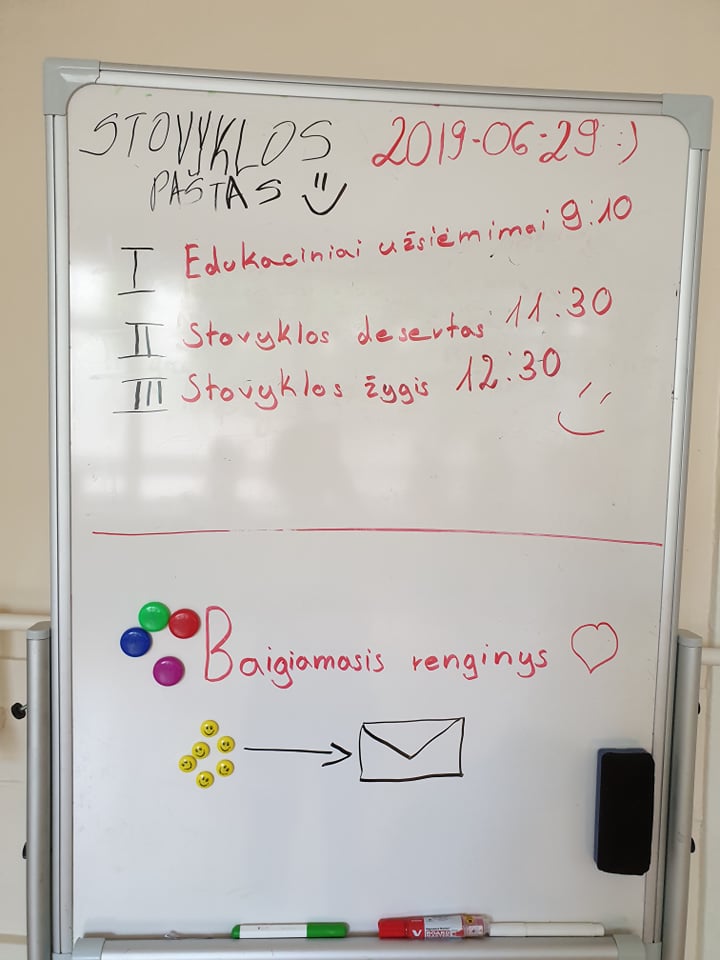 STOVYKLOS 2019-06-29 :)
PAŠTAS
I Edukaciniai užsiėmimai 9:10
II Stovyklos desertas 11:30
III Stovyklos žygis 12:30
Baigiamasis renginys